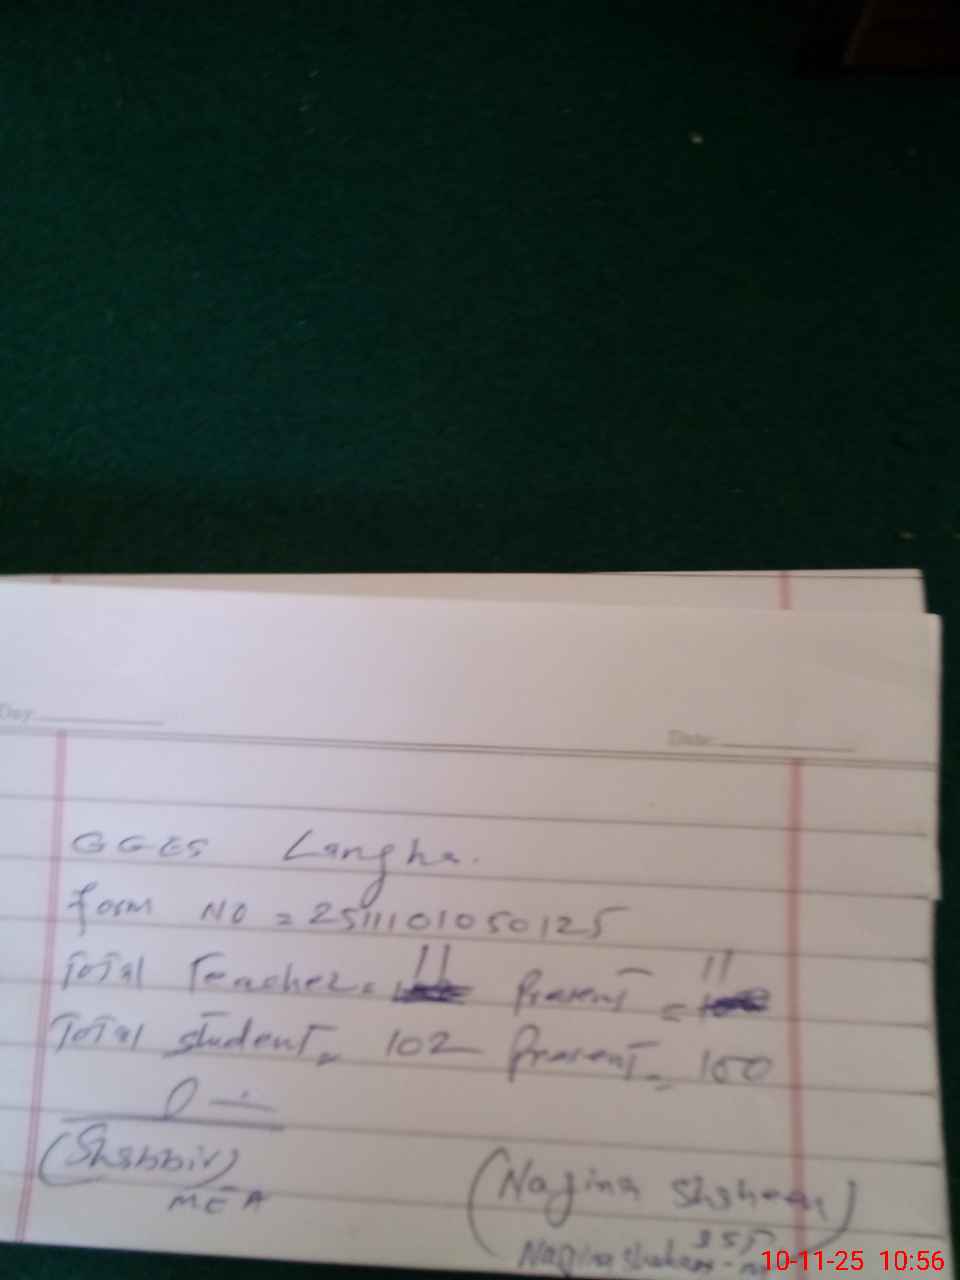 Day
Date
GGES Langha.
form NO = 2511101050125
Total Teacher = 11 Present = 11
Total student = 102 Present = 100
(Shabbir)
MEA
(Nagina Shaheen)
Nagina Shaheen
10-11-25 10:56